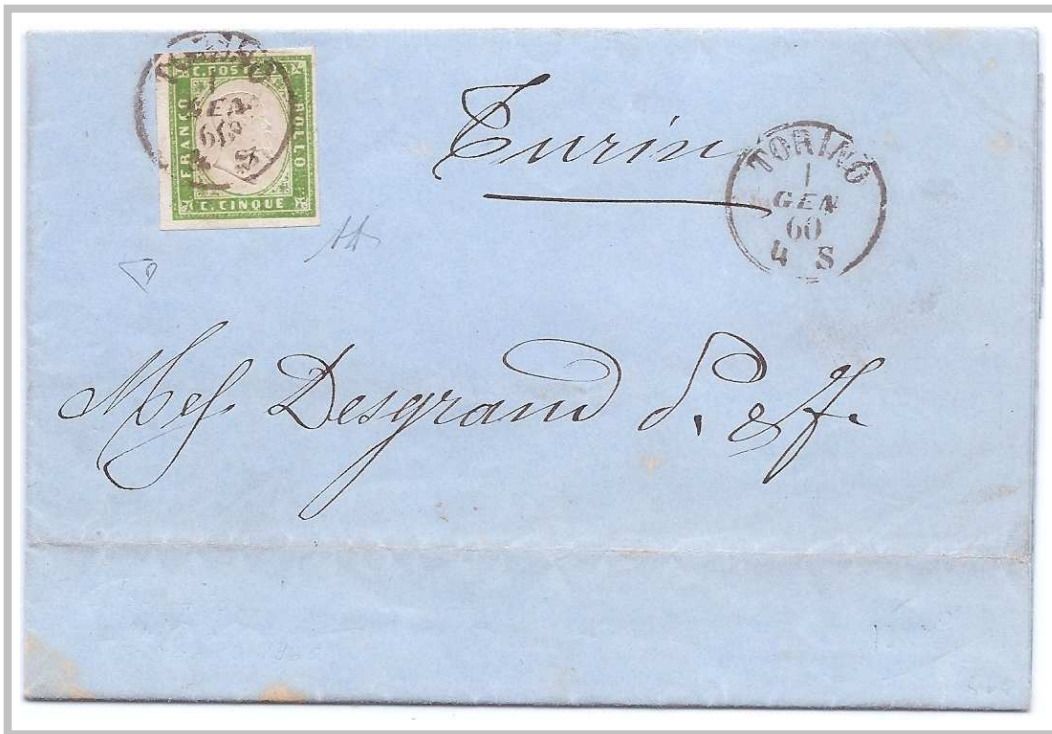 C. POSTE
FRANCO
BOLLO
C. CINQUE
GEN
60
S
Turin
TORINO
1
GEN
60
4 S
Desgrand P. &